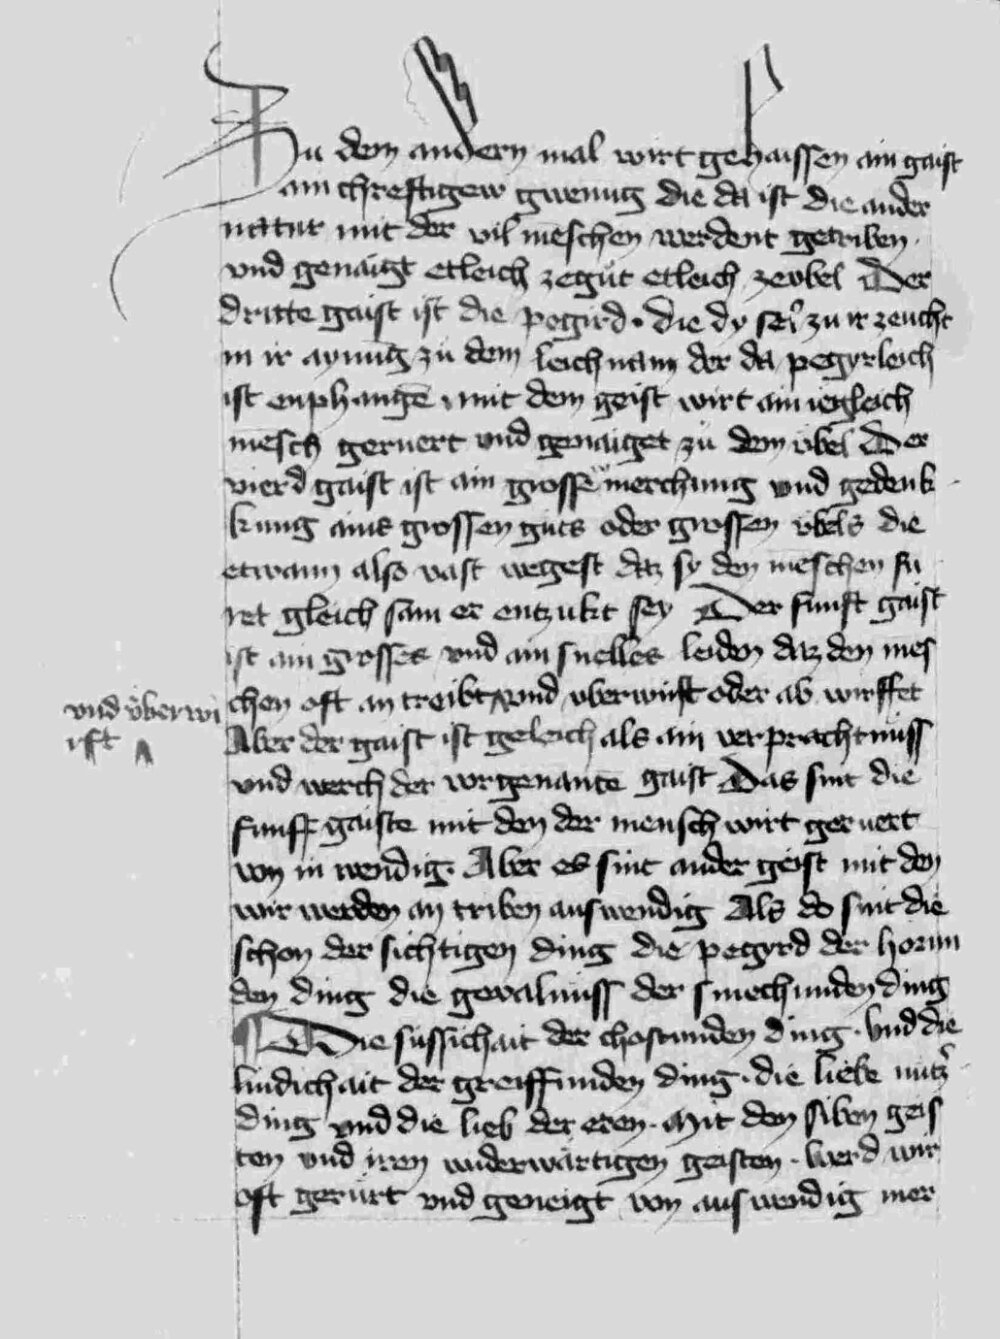 Zu dem andern mal wirt gehaissen ain gaist
ain chreftigew gwenug die da ist die ander
natur mit der vil meschen werdent getriben.
vnd genaigt etleich zegut etleich zevbel Der
dritte gaist ist die pegird. die dy sel zu ir zeucht
in ir aynug zu dem leichnam der da pegyrleich
ist enphange mit dem geist wirt ain iegleich
mesch geruert vnd genaiget zu dem vbel Der
vierd gaist ist ain grosse merchung vnd gedenk
kung ains grossen guts oder grossen vbels die
etwann also vast wegest daz sy den meschen fu
ret gleich sam er entzukt sey Der funft gaist
ist ain grosses vnd ain snelles leiden daz den mes
chen oft an treibt vnd vberwirft oder ab wirffet
vnd vberwi
rft
Aber der gaist ist geleich als ain verprachtnuss
vnd werch der vorgenante gaist Das sint die
funff gaiste mit den der mensch wirt geruert
von in wendig. Aber es sint ander geist mit den
wir werden an triben auswendig Als do sint die
schon der sichtigen ding die pegyrd der horun
den ding die gevalnuss der smechunden ding
Die sussichait der chostunden ding. Vnd die
lindichait der greiffunden ding. die liebe nutz
ding vnd die lieb der eren. Mit den siben geis
ten vnd iren widerwartigen geisten. werd wir
oft gerurt vnd geneigt von auswendig mer